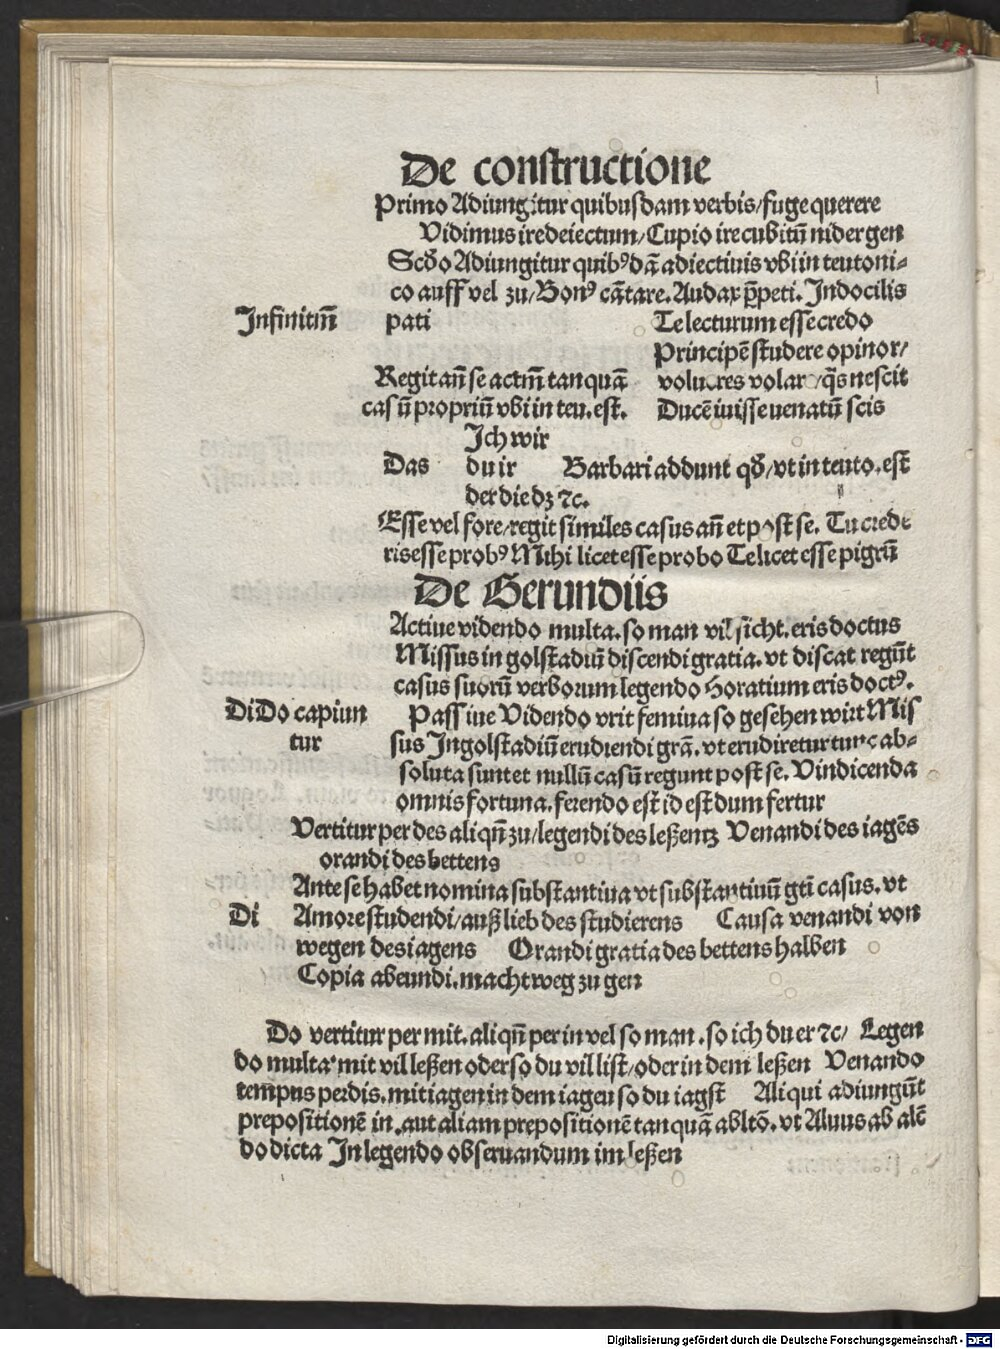 De constructione
Primo Adiungitur quibusdam verbis/fuge querere
Vidimus ire deiectum/Cupio ire cubitū nider gen
Scd̄o Adiungitur quibꝰdā adiectiuis vbi in teutoni⸗
co auff vel zu/Bonꝰ cātare. Audax p̄peti. Indocilis
Infinitiuū pati Te lecturum esse credo
Principē studere opinor/
Regit añ se actm̄ tanquā volucres volare/q̄s nescit
casū propriū vbi in teu. est. Ducē iuisse uenatū scis
Ich wir
Das du ir Barbari addunt qd̄/vt in teuto. est
der die dz ⁊c.
Esse vel fore/regit similes casus añ et post se. Tu crede
ris esse probꝰ Mihi licet esse probo Te licet esse pigrū
De Gerundiis
Actiue videndo multa. so man vil sicht. eris doctus
Missus in golstadiū discendi gratia. vt discat regūt
casus suorū verborum legendo Horatium eris doctꝰ.
Di Do capiun Passiue Videndo vrit femina so gesehen wirt Mis
tur sus Ingolstadiū erudiendi grā. vt erudiretur tunc ab⸗
soluta sunt et nullū casū regunt post se. Vindicenda
omnis fortuna. ferendo est id est dum fertur
Vertitur per des aliqñ zu/legendi des leßentz Venandi des iagēs
orandi des bettens
Ante se habet nomina substantiua vt substantiuū gti casus. vt
Di Amore studendi/auß lieb des studierens Causa venandi von
wegen des iagens Orandi gratia des bettens halben
Copia abeundi. macht weg zu gen
Do vertitur per mit. aliqñ per in vel so man. so ich du er ⁊c/ Legen
do multa mit vil leßen oder so du vil list/oder in dem leßen Venando
tempus perdis. mit iagen in dem iagen so du iagst Aliqui adiungūt
prepositionē in. aut aliam prepositionē tanquā abltō. vt Aluus ab alē
do dicta In legendo obseruandum im leßen
Digitalisierung gefördert durch die Deutsche Forschungsgemeinschaft - DFG